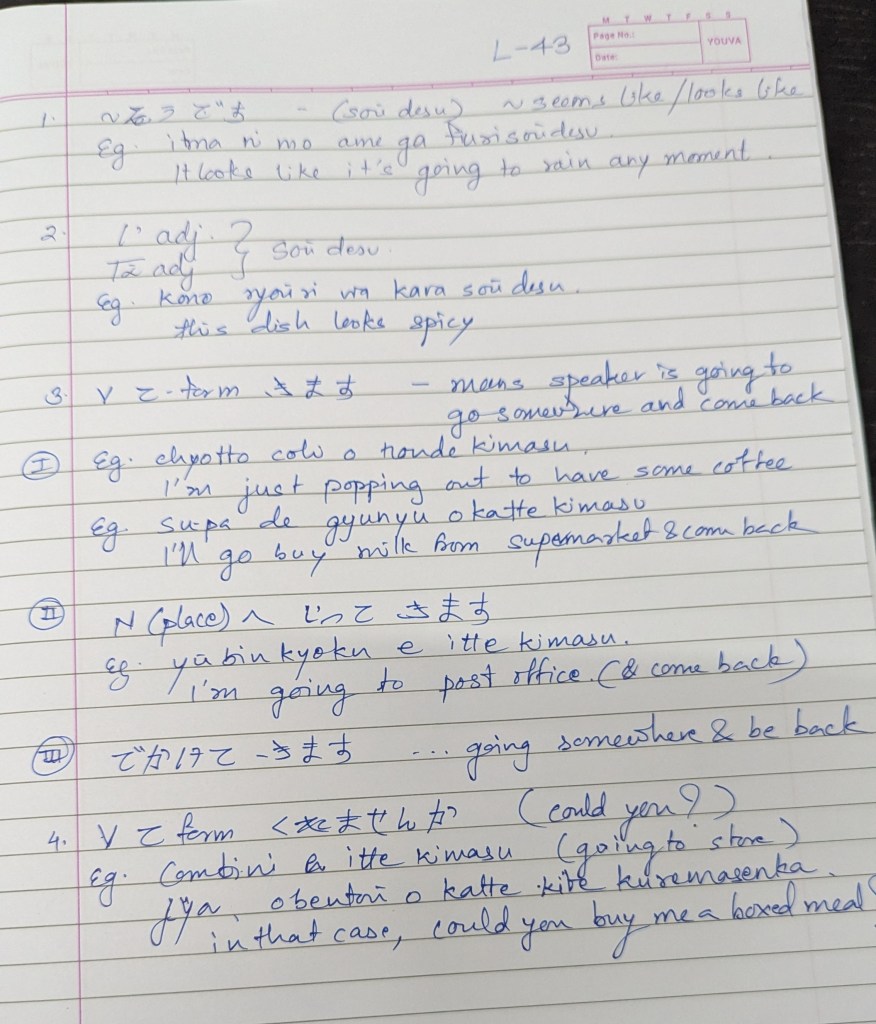 L-43
M T W T F S S
Page No.:
YOUVA
Date:
1. ~そうです - (soū desu) ~ seems like/looks like
Eg. ima ni mo ame ga furisoūdesu.
It looks like it's going to rain any moment.
2. い adj.
な adj } soū desu.
Eg. Kono ryoūri wa kara soū desu.
this dish looks spicy
3. V て-form きます - means speaker is going to
go somewhere and come back
Ⅰ Eg. chyotto cohi o nonde kimasu.
I'm just popping out to have some coffee
Eg. supa de gyunyu o katte kimasu
I'll go buy milk from supermarket & com back
Ⅱ N (place) へ いって きます
Eg. yūbin kyoku e itte kimasu.
I'm going to post office. (& come back)
Ⅲ でかけて きます ... going somewhere & be back
4. V て form くれませんか (could you?)
Eg. Combini e itte kimasu (going to store)
jya, obentoū o katte kite kuremasenka.
in that case, could you buy me a boxed meal?